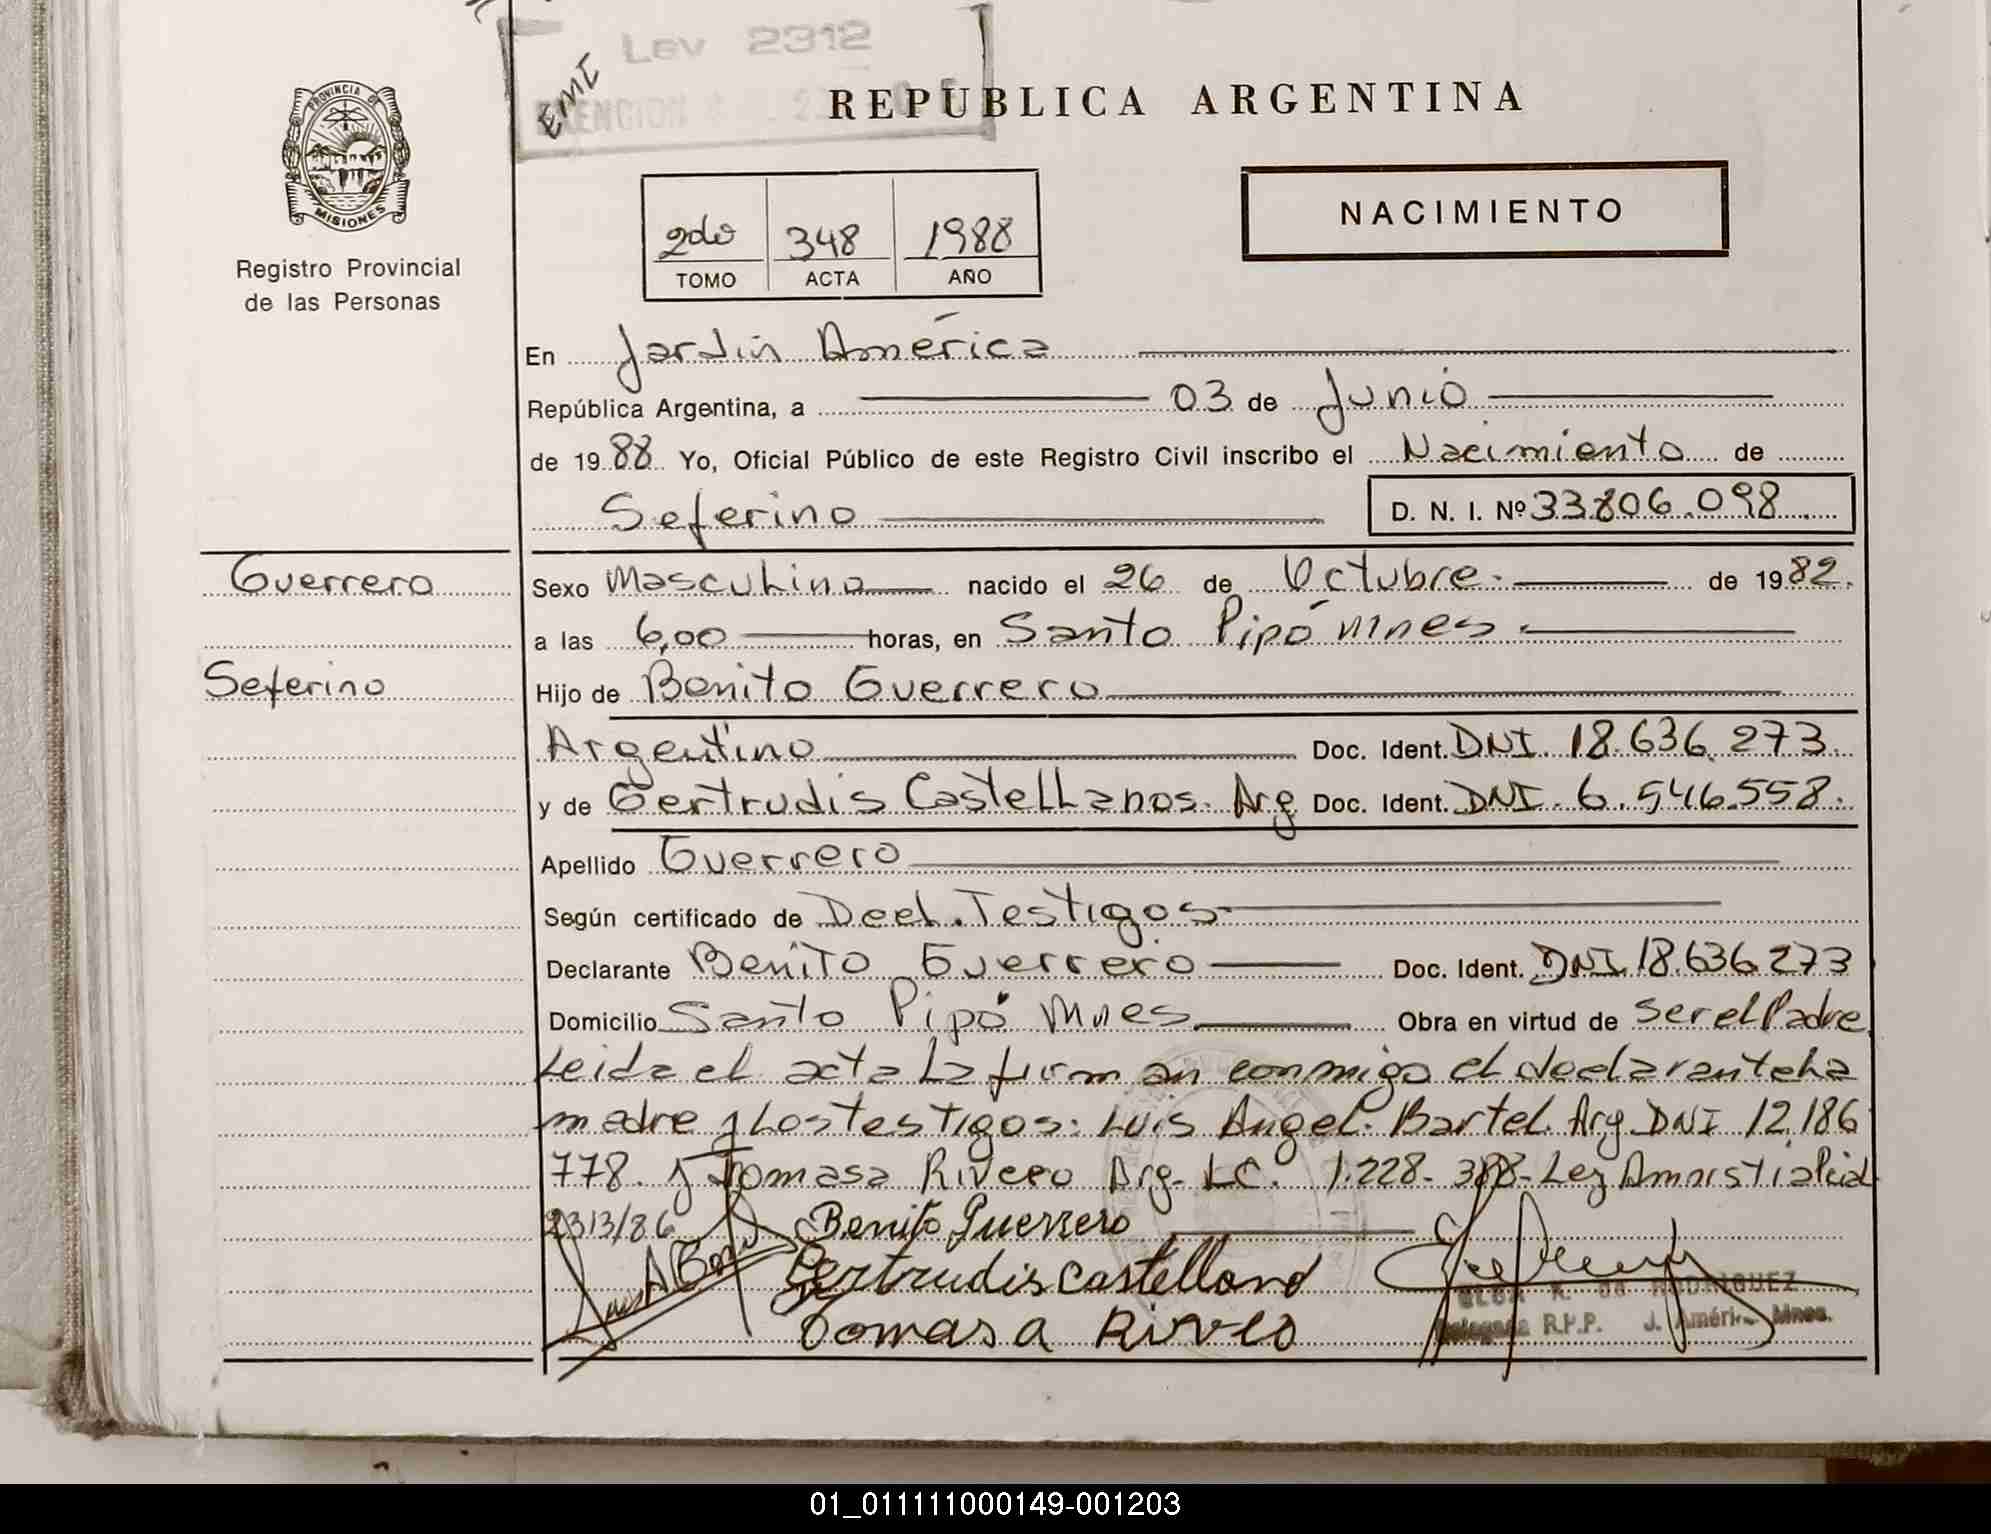 Ley 2312
EMI
EXENCION
REPUBLICA ARGENTINA
PROVINCIA DE
MISIONES
Registro Provincial
de las Personas
NACIMIENTO
2do 348 1988
TOMO ACTA AÑO
En Jardin América
República Argentina, a 03 de Junio
de 1988 Yo, Oficial Público de este Registro Civil inscribo el Nacimiento de
Seferino D. N. I. Nº 33806.098
Guerrero
Seferino
Sexo Masculino nacido el 26 de Octubre. de 1982.
a las 6,00 horas, en Santo Pipó Mnes.
Hijo de Benito Guerrero
Argentino Doc. Ident. DNI. 18.636.273.
y de Gertrudis Castellanos. Arg Doc. Ident. DNI. 6.546.558.
Apellido Guerrero
Según certificado de Decl. Testigos
Declarante Benito Guerrero Doc. Ident. DNI 18.636.273
Domicilio Santo Pipó Mnes Obra en virtud de ser el Padre.
Leida el acta la firman conmigo el declarante la
madre y Los testigos: Luis Angel. Bartel. Arg. DNI 12.186
778. y Tomasa Rivero Arg. LC. 1.228. Ley Amnistia
2313/86 Benito Guerrero
Gertrudis Castellano
Tomasa Rivero
ELGA R. de RODRIGUEZ
Delegada R.P.P. J. América Mnes.
01_011111000149-001203